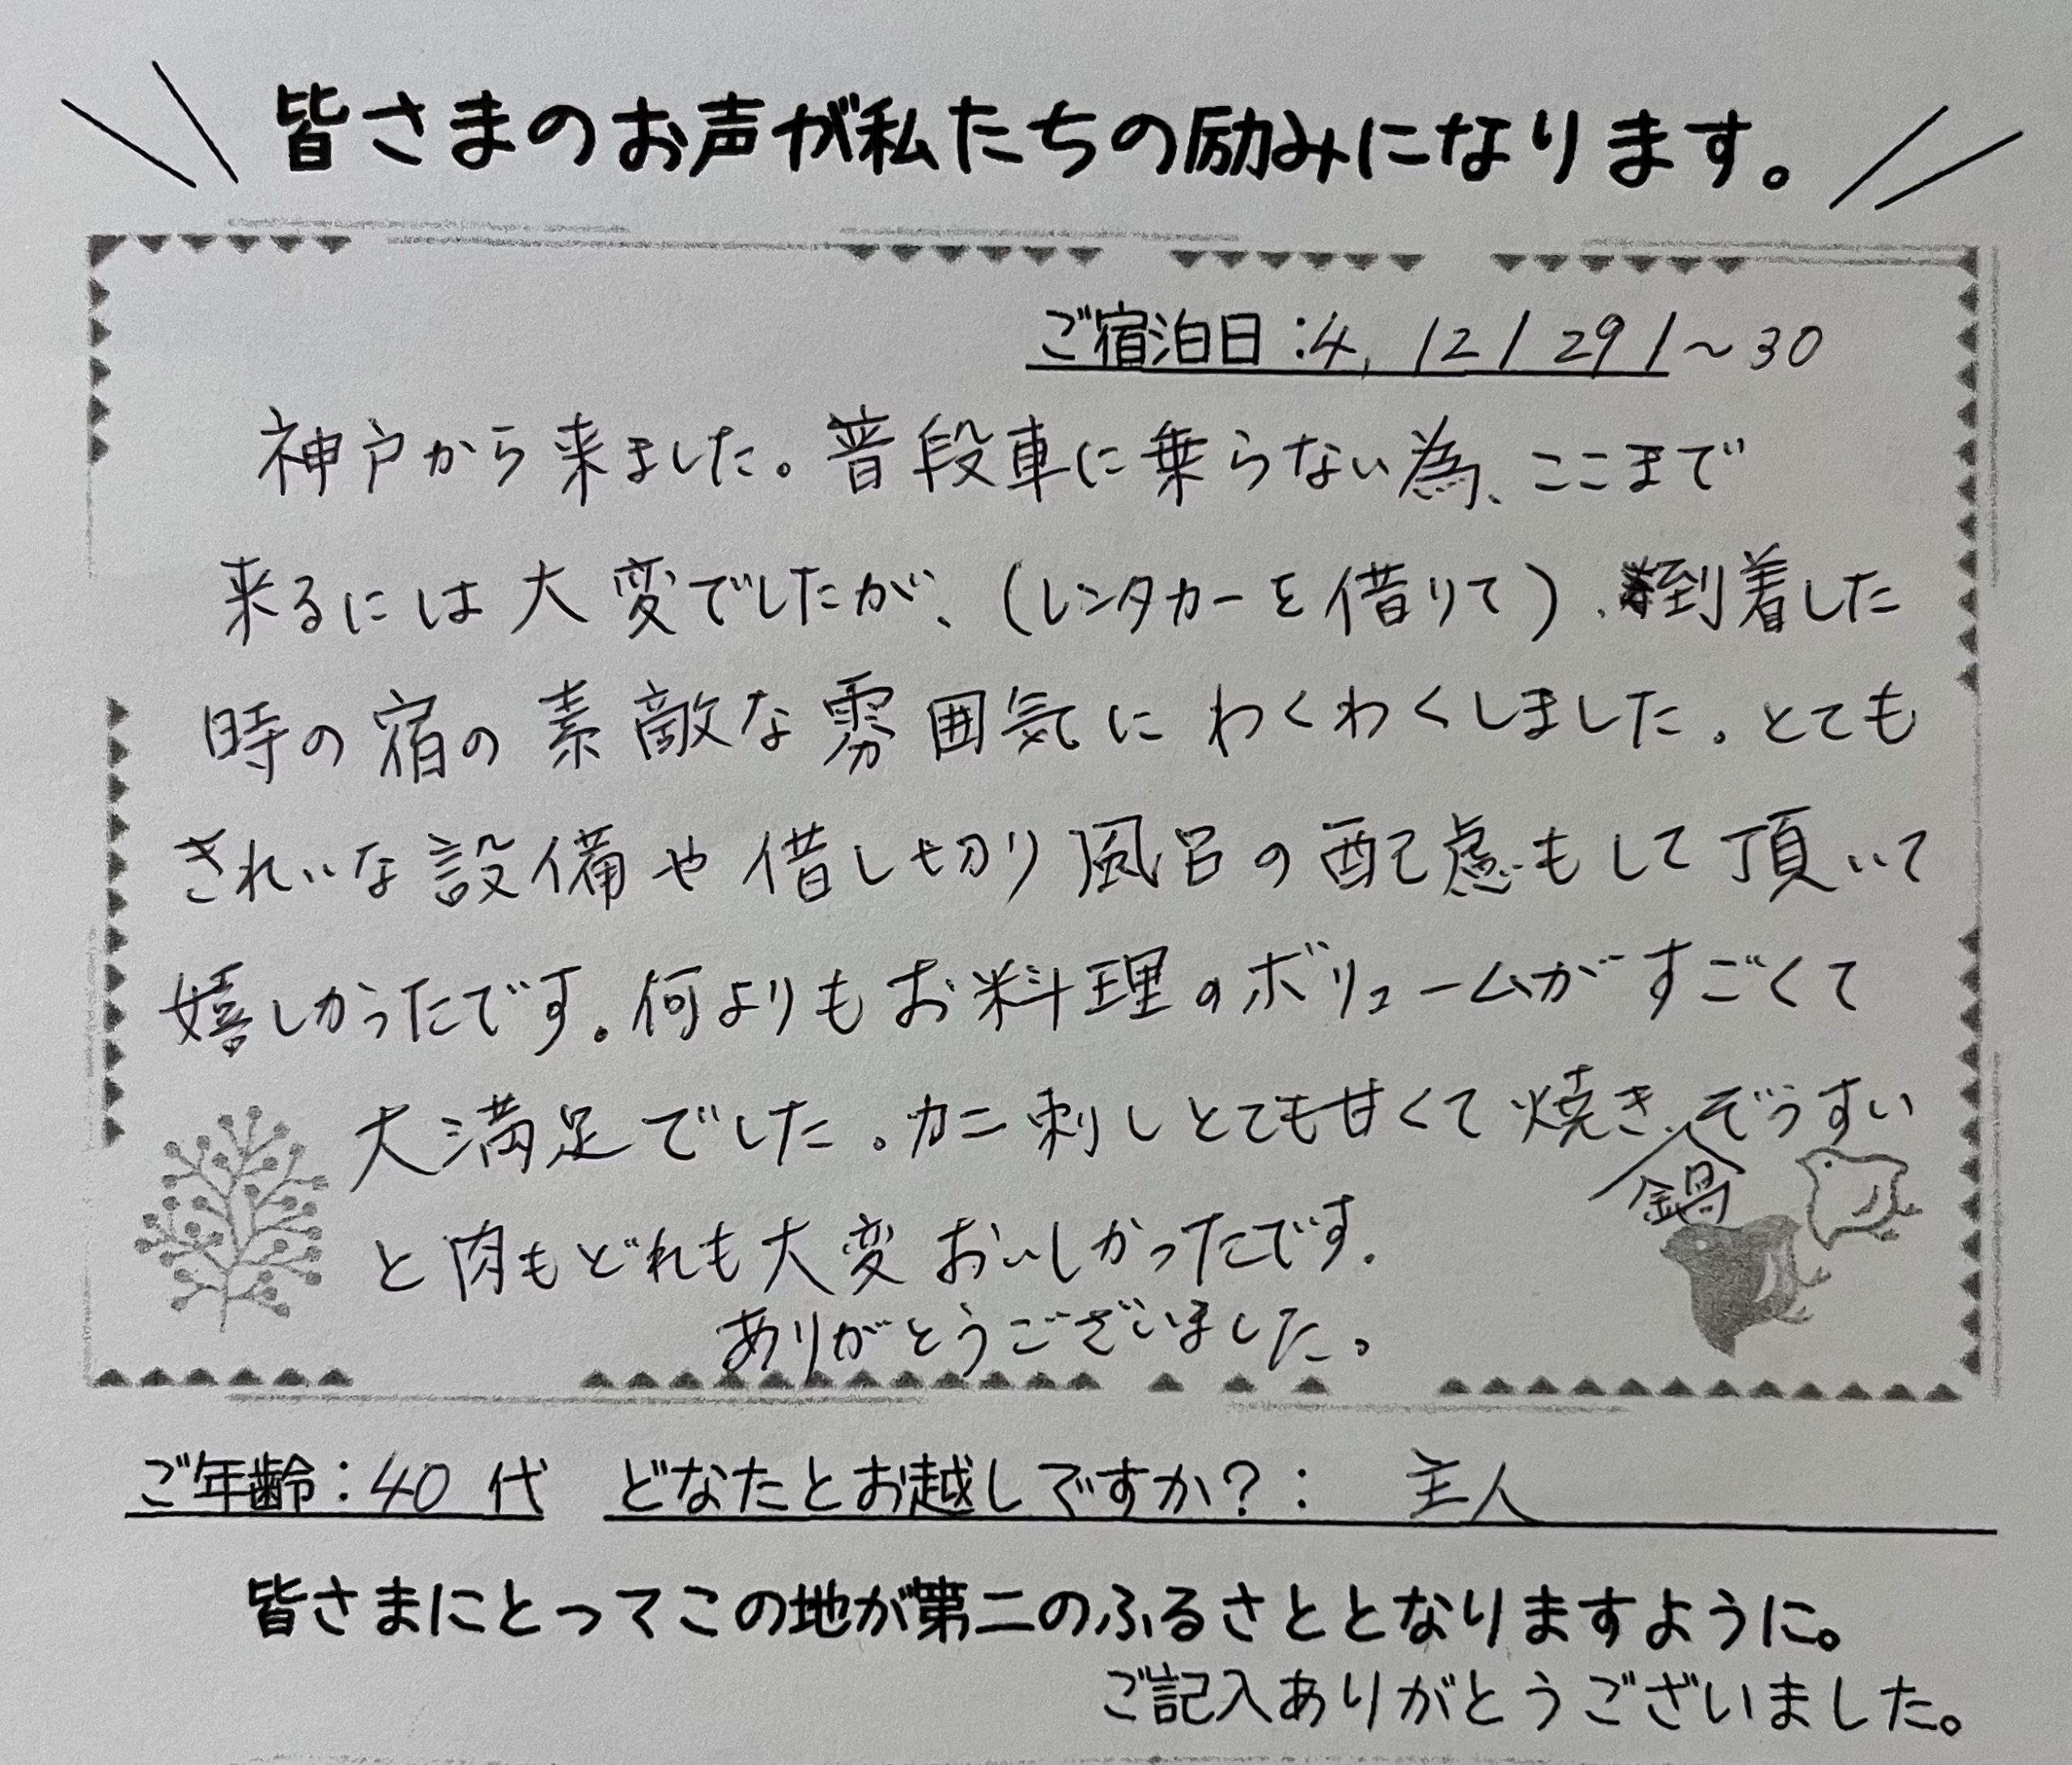 皆さまのお声が私たちの励みになります。
ご宿泊日:4, 12/29/~30
神戸から来ました。普段車に乗らない為、ここまで
来るには大変でしたが、(レンタカーを借りて)、到着した
時の宿の素敵な雰囲気にわくわくしました。とても
きれいな設備や借し切り風呂の配慮もして頂いて
嬉しかったです。何よりもお料理のボリュームがすごくて
大満足でした。カニ刺しとても甘くて焼き、鍋ぞうすい
と肉もどれも大変おいしかったです。
ありがとうございました。
ご年齢:40代 どなたとお越しですか?: 主人
皆さまにとってこの地が第二のふるさととなりますように。
ご記入ありがとうございました。